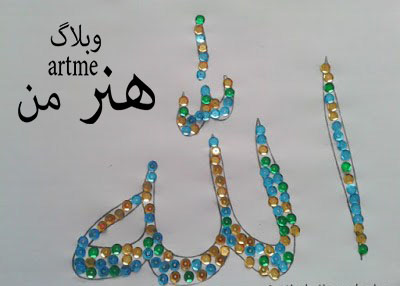 وبلاگ
artme
هنر من
الله